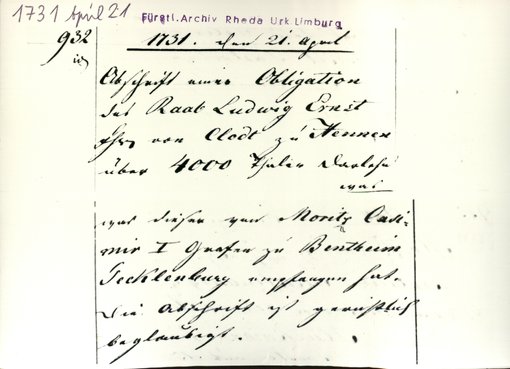 1731 April 21
Fürstl. Archiv Rheda Urk. Limburg
932
1731. den 21. April
Abschrift einer Obligation
des Raab Ludwig Ernst
Fhr. von Clodt zu Hennen
über 4000 Thaler Darlehn
was
was dieser von Moritz Casi-
mir I Grafen zu Bentheim
Tecklenburg empfangen hat.
Die Abschrift ist gerichtlich
beglaubigt.